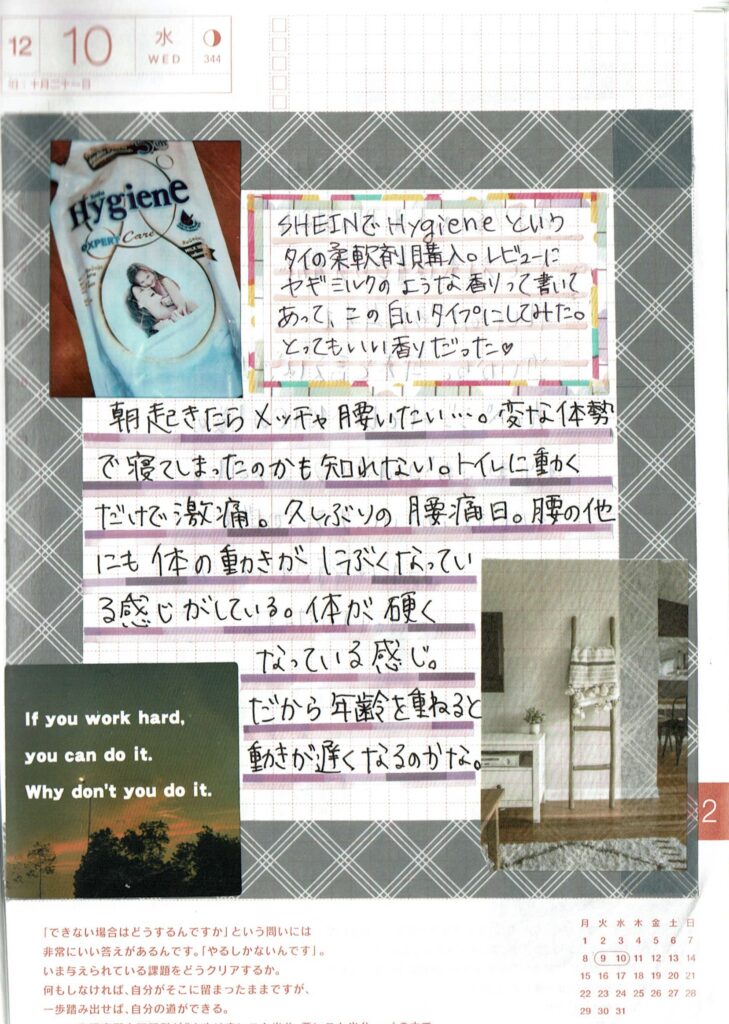 12
10
水
WED
344
旧:十月二十一日
Hygiene
EXPERT Care
SHEINで Hygiene という
タイの柔軟剤購入。レビューに
ヤギミルクのような香りって書いて
あって、この白いタイプにしてみた。
とってもいい香りだった♥
朝起きたらメッチャ腰いたい…。変な体勢
で寝てしまったのかも知れない。トイレに動く
だけで激痛。久しぶりの腰痛日。腰の他
にも体の動きがしぶくなってい
る感じがしている。体が硬く
なっている感じ。
だから年齢を重ねると
動きが遅くなるのかな。
If you work hard,
you can do it.
Why don't you do it.
2
「できない場合はどうするんですか」という問いには
非常にいい答えがあるんです。「やるしかないんです」。
いま与えられている課題をどうクリアするか。
何もしなければ、自分がそこに留まったままですが、
一歩踏み出せば、自分の道ができる。
月 火 水 木 金 土 日
1 2 3 4 5 6 7
8 9 10 11 12 13 14
15 16 17 18 19 20 21
22 23 24 25 26 27 28
29 30 31